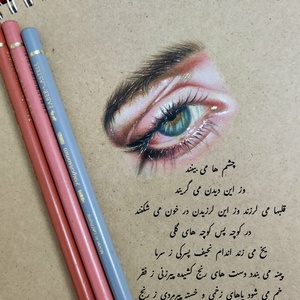 چشم ها می بینند
وز این دیدن می گریند
قلبها می لرزند وز این لرزیدن در خون می شکنند
در کوچه پس کوچه های گلی
یخ می زند اندام نحیف پسرکی ز سرما
پینه می بندد دست های رنج کشیده پیرزنی ز فقر
خم می شود پاهای زخمی و خسته پیرمردی ز رنج